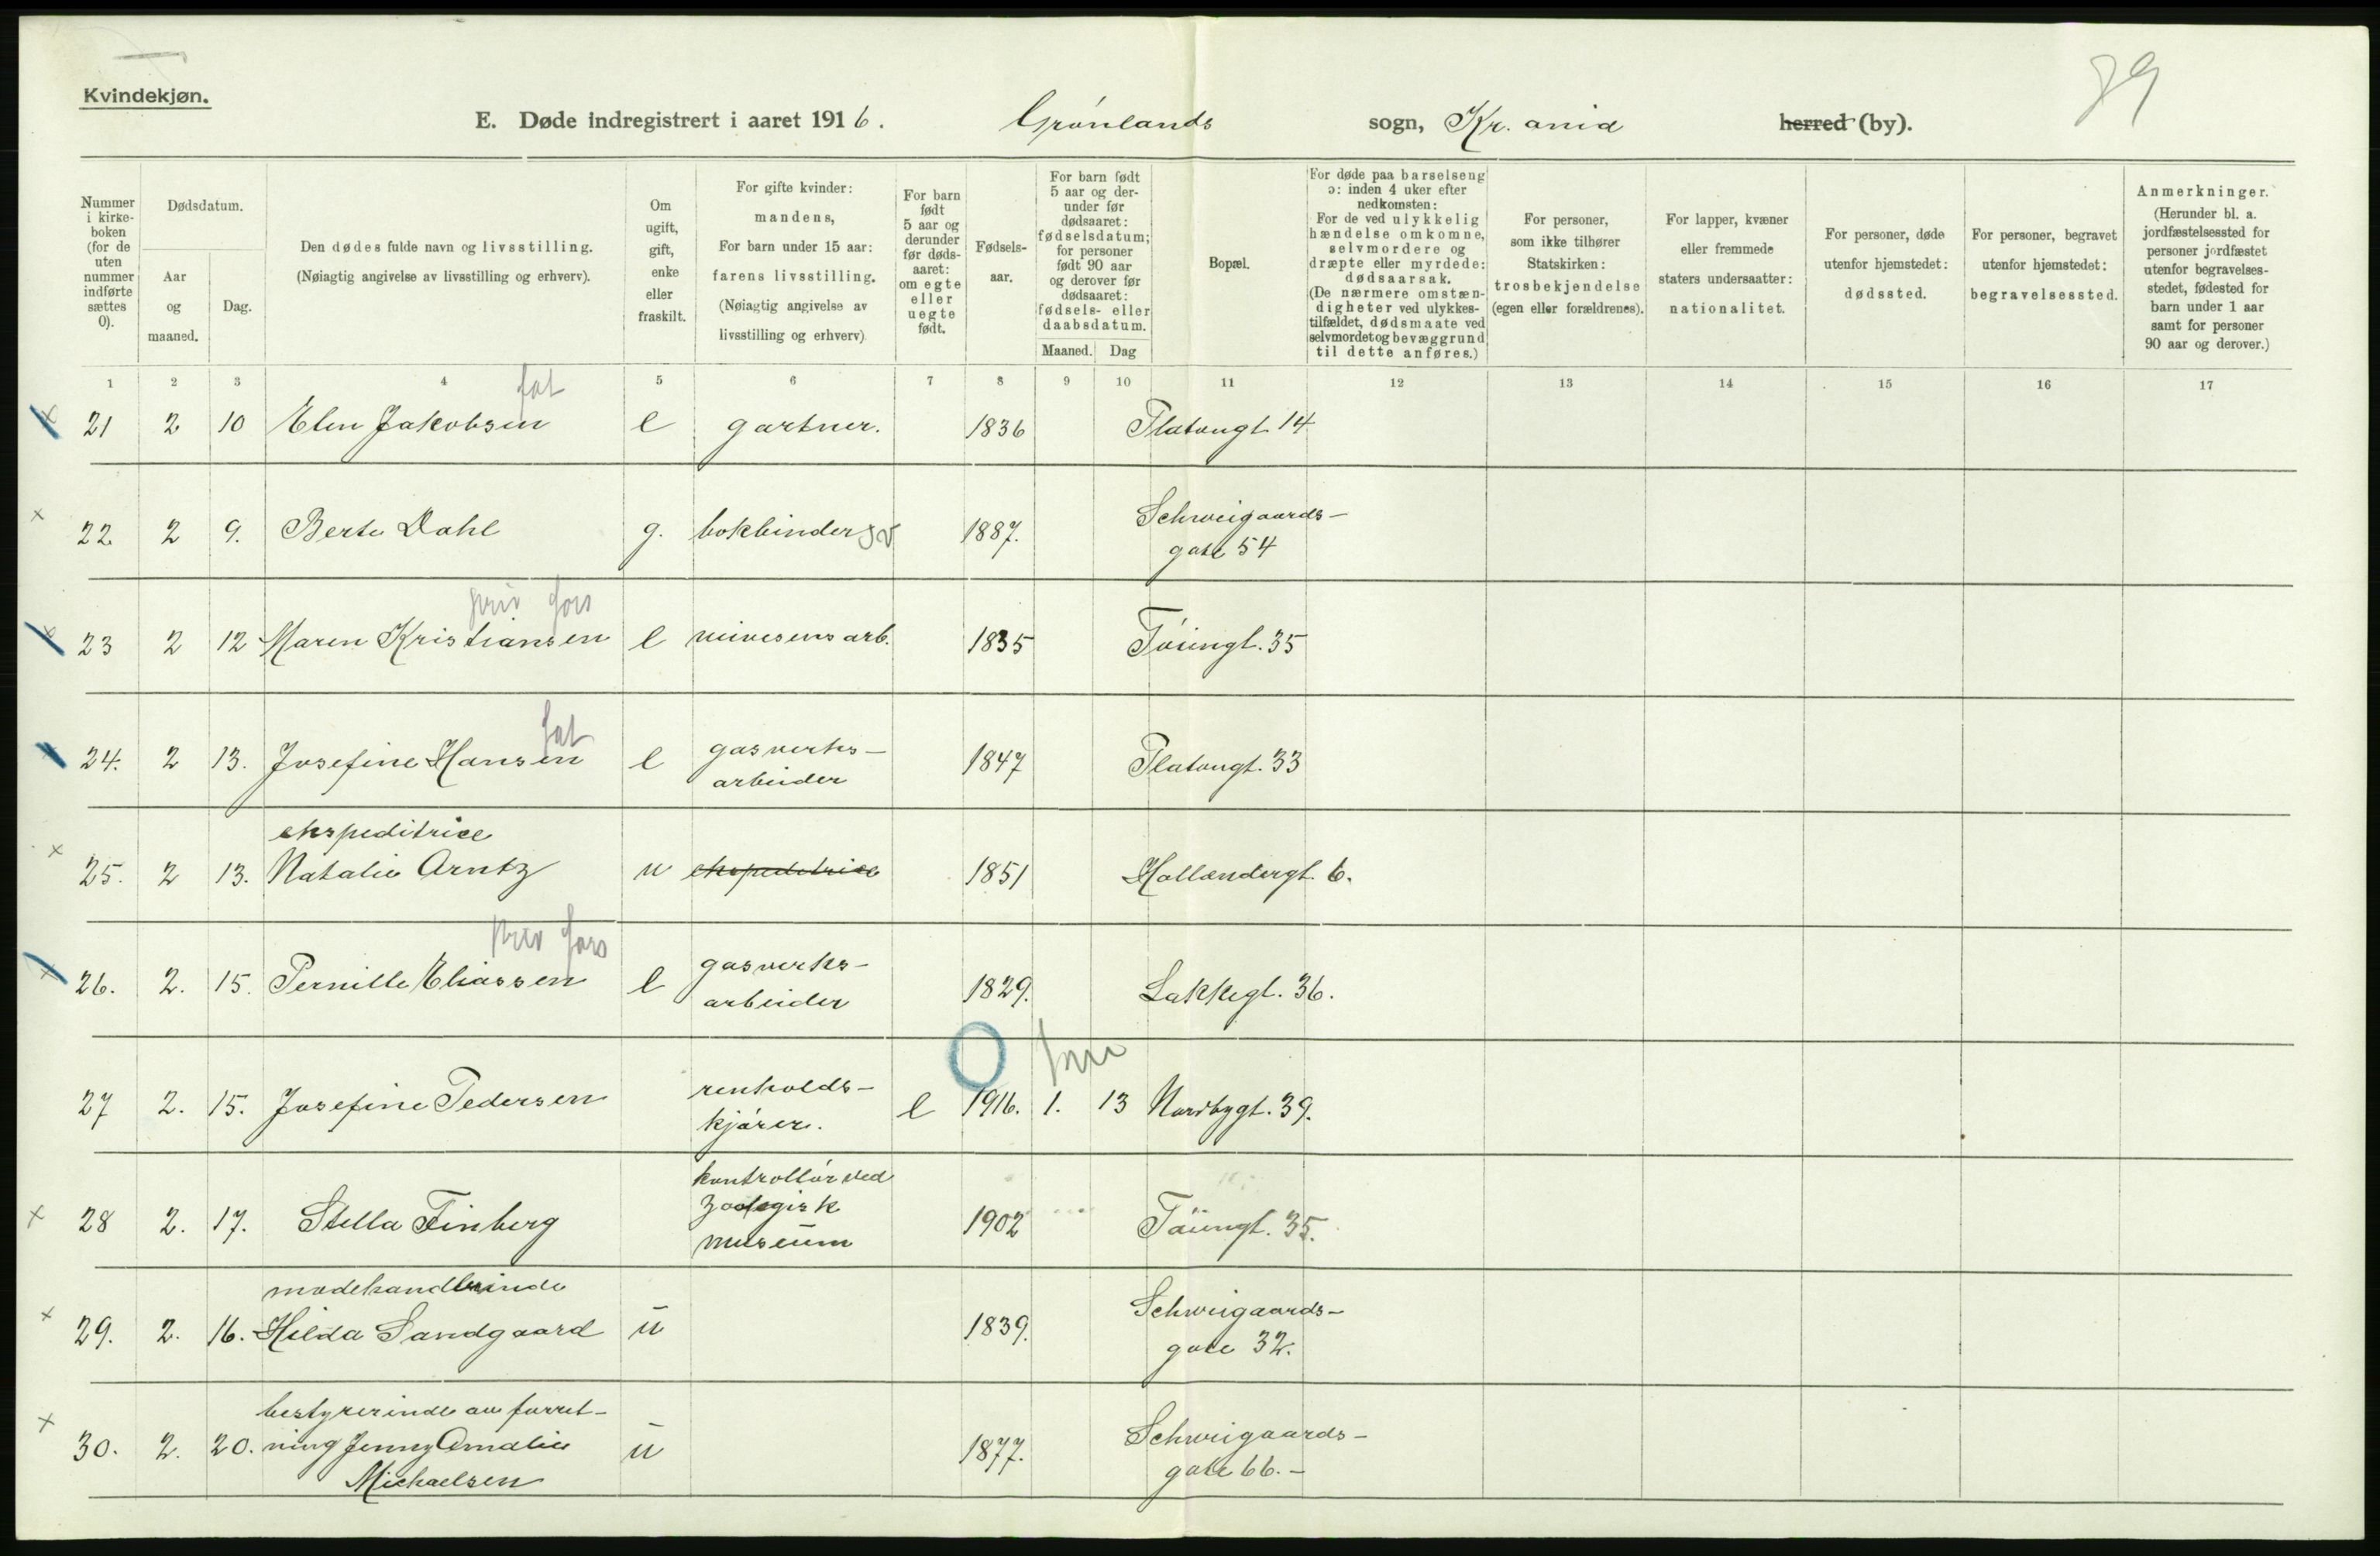 Kvindekjøn.
E. Døde indregistrert i aaret 1916. Grønlands sogn, Kr.ania herred (by).
Nummer i kirke-boken (for de uten nummer indførte sættes 0).
Dødsdatum.
Aar og maaned.
Dag.
Den dødes fulde navn og livsstilling.
(Nøiagtig angivelse av livsstilling og erhverv).
Om ugift, gift, enke eller fraskilt.
For gifte kvinder: mandens,
For barn under 15 aar: farens livsstilling.
(Nøiagtig angivelse av livsstilling og erhverv)
For barn født 5 aar og derunder før døds-aaret: om egte eller uegte født.
Fødsels-aar.
For barn født 5 aar og der-under før dødsaaret: fødselsdatum; for personer født 90 aar og derover før dødsaaret: fødsels- eller daabsdatum.
Maaned. Dag
Bopæl.
For døde paa barselseng ɔ: inden 4 uker efter nedkomsten:
For de ved ulykkelig hændelse omkomne, selvmordere og dræpte eller myrdede: dødsaarsak.
(De nærmere omstæn-digheter ved ulykkes-tilfældet, dødsmaate ved selvmordet og bevæggrund til dette anføres.)
For personer, som ikke tilhører Statskirken: trosbekjendelse (egen eller forældrenes).
For lapper, kvæner eller fremmede staters undersaatter: nationalitet.
For personer, døde utenfor hjemstedet: dødssted.
For personer, begravet utenfor hjemstedet: begravelsessted.
Anmerkninger.
(Herunder bl. a. jordfæstelsessted for personer jordfæstet utenfor begravelses-stedet, fødested for barn under 1 aar samt for personer 90 aar og derover.)
1 2 3 4 5 6 7 8 9 10 11 12 13 14 15 16 17
fat
21 2 10 Elen Jakobsen e gartner. 1836 Platougt. 14
22 2 9. Berte Dahl g. bokbinder sv 1887. Schweigaards-
gate 54
priv fors
23 2 12 Maren Kristiansen e 1835 Tøiengt. 35
fat
24. 2 13. Josefine Hansen e gasverks-
arbeider 1847 Platougt. 33
ekspeditrice
25. 2 13. Natalie Arntz u ekspeditrice 1851 Hollendergt. 6.
priv fors
26. 2. 15. Pernille Eliassen e gasverks-
arbeider 1829. Lakkegt. 36.
27 2. 15. Josefine Pedersen renholds-
kjører. e 1916. 1. 13 Nordbygt. 39.
28 2. 17. Stella Finberg kontrollør ved
zoologisk
museum 1902 Tøiengt. 35.
modehandlerinde
29. 2. 16. Hilda Sandgaard u 1839. Schweigaards-
gate 32.
bestyrerinde av forret-
30. 2. 20. ning Jenny Amalie u 1877. Schweigaards-
Michaelsen gate 66.-